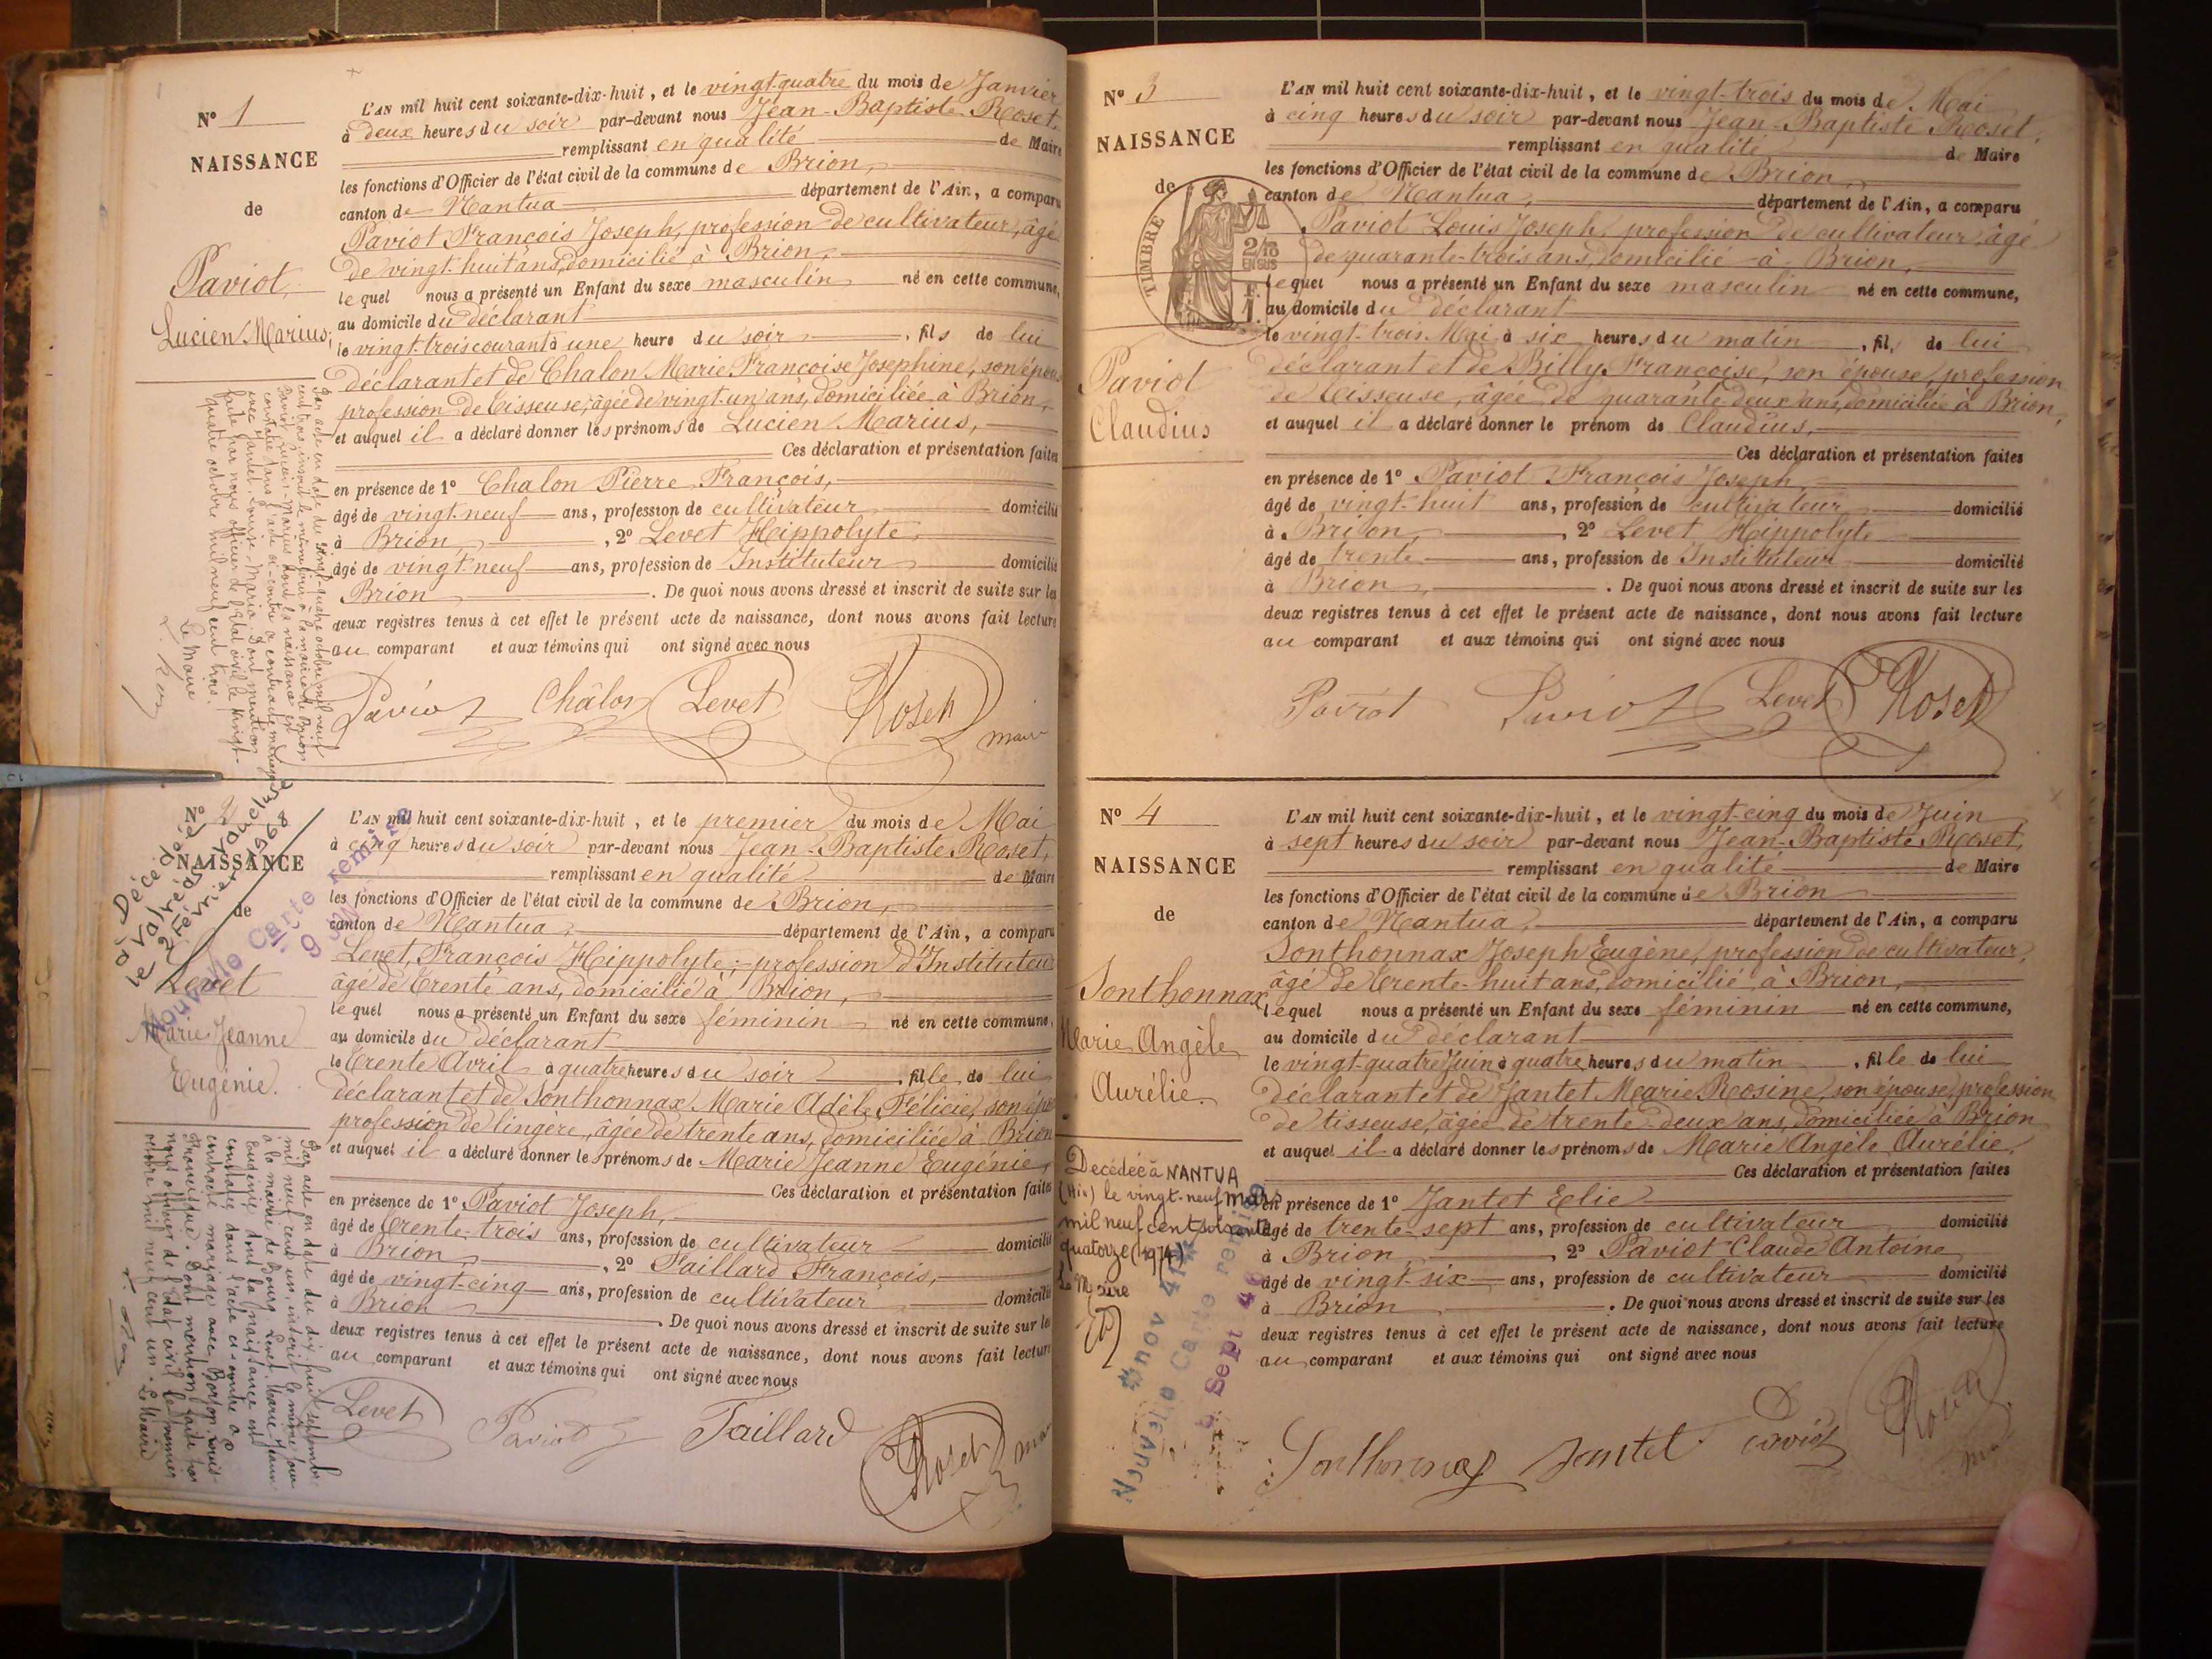 N° 1
NAISSANCE
de
Paviot
Lucien Marius
L'AN mil huit cent soixante-dix-huit, et le vingt-quatre du mois de Janvier
à deux heures du soir par-devant nous Jean-Baptiste Roset,
remplissant en qualité de Maire
les fonctions d'Officier de l'état civil de la commune de Brion,
canton de Nantua département de l'Ain, a comparu
Paviot François Joseph, profession de cultivateur, âgé
de vingt-huit ans, domicilié à Brion,
lequel nous a présenté un Enfant du sexe masculin né en cette commune,
au domicile du déclarant
le vingt-trois courant à une heure du soir, fils de lui
déclarant et de Chalon Marie Françoise Josephine, son épouse
profession de tisseuse, âgée de vingt-un ans, domiciliée à Brion,
et auquel il a déclaré donner les prénoms de Lucien Marius,
Ces déclaration et présentation faites
en présence de 1° Chalon Pierre François,
âgé de vingt-neuf ans, profession de cultivateur domicilié
à Brion, 2° Levet Hippolyte
âgé de vingt-neuf ans, profession de Instituteur domicilié
Brion. De quoi nous avons dressé et inscrit de suite sur les
deux registres tenus à cet effet le présent acte de naissance, dont nous avons fait lecture
au comparant et aux témoins qui ont signé avec nous
Paviot Châlon Levet Roset
maire
Par acte en date du vingt-quatre octobre mil neuf
cent trois, inscrit le même jour à la mairie de Brion
Paviot Lucien-Marius dont la naissance est
constatée dans l'acte ci-contre a contracté mariage
avec Jantet Louise Maria. Dont mention
faite par nous officier de l'état civil le vingt-
quatre octobre mil neuf cent trois.
Le Maire
N° 2
NAISSANCE
de
Levet
Marie Jeanne
Eugénie.
Décédée
à Valréas Vaucluse
le 2 Février 1968
Nouvelle Carte remise
L'AN mil huit cent soixante-dix-huit, et le premier du mois de Mai
à cinq heures du soir par-devant nous Jean-Baptiste Roset,
remplissant en qualité de Maire
les fonctions d'Officier de l'état civil de la commune de Brion,
canton de Nantua département de l'Ain, a comparu
Levet, François Hippolyte, profession d'Instituteur
âgé de trente ans, domicilié à Brion,
lequel nous a présenté un Enfant du sexe féminin né en cette commune,
au domicile du déclarant
le trente Avril à quatre heures du soir, fille de lui
déclarant et de Sonthonnax Marie Adèle Félicie, son
profession de lingère, âgée de trente ans, domiciliée à Brion
et auquel il a déclaré donner les prénoms de Marie Jeanne Eugénie,
Ces déclaration et présentation faites
en présence de 1° Paviot Joseph,
âgé de trente-trois ans, profession de cultivateur domicilié
à Brion, 2° Taillard François,
âgé de vingt-cinq ans, profession de cultivateur domicilié
à Brion. De quoi nous avons dressé et inscrit de suite sur les
deux registres tenus à cet effet le présent acte de naissance, dont nous avons fait lecture
au comparant et aux témoins qui ont signé avec nous
Levet Paviot Taillard Roset
Par acte en date du dix-huit septembre
mil neuf cent un, inscrit le même jour
à la mairie de Bourg Levet Marie Jeanne
Eugénie dont la naissance est
constatée dans l'acte ci-contre a
contracté mariage avec
Dont mention faite par
nous officier de l'état civil le premier
octobre mil neuf cent un. Le Maire
N° 3
NAISSANCE
de
TIMBRE
2/10
EN SUS
Paviot
Claudius
L'AN mil huit cent soixante-dix-huit, et le vingt-trois du mois de Mai
à cinq heures du soir par-devant nous Jean-Baptiste Roset,
remplissant en qualité de Maire
les fonctions d'Officier de l'état civil de la commune de Brion,
canton de Nantua, département de l'Ain, a comparu
Paviot Louis Joseph, profession de cultivateur, âgé
de quarante-trois ans, domicilié à Brion,
lequel nous a présenté un Enfant du sexe masculin né en cette commune,
au domicile du déclarant
le vingt-trois Mai à six heures du matin, fils de lui
déclarant et de Billy Françoise, son épouse, profession
de tisseuse, âgée de quarante-deux ans, domiciliée à Brion,
et auquel il a déclaré donner le prénom de Claudius,
Ces déclaration et présentation faites
en présence de 1° Paviot François Joseph,
âgé de vingt-huit ans, profession de cultivateur domicilié
à Brion, 2° Levet Hippolyte
âgé de trente ans, profession de Instituteur domicilié
à Brion. De quoi nous avons dressé et inscrit de suite sur les
deux registres tenus à cet effet le présent acte de naissance, dont nous avons fait lecture
au comparant et aux témoins qui ont signé avec nous
Paviot Paviot Levet Roset
N° 4
NAISSANCE
de
Sonthonnax
Marie Angèle
Aurélie.
L'AN mil huit cent soixante-dix-huit, et le vingt-cinq du mois de Juin
à sept heures du soir par-devant nous Jean-Baptiste Roset,
remplissant en qualité de Maire
les fonctions d'Officier de l'état civil de la commune de Brion
canton de Nantua, département de l'Ain, a comparu
Sonthonnax Joseph Eugène, profession de cultivateur,
âgé de trente-huit ans, domicilié à Brion,
lequel nous a présenté un Enfant du sexe féminin né en cette commune,
au domicile du déclarant
le vingt-quatre Juin à quatre heures du matin, fille de lui
déclarant et de Jantet Marie Rosine, son épouse, profession
de tisseuse, âgée de trente-deux ans, domiciliée à Brion
et auquel il a déclaré donner les prénoms de Marie Angèle Aurélie,
Ces déclaration et présentation faites
en présence de 1° Jantet Elie
âgé de trente-sept ans, profession de cultivateur domicilié
à Brion, 2° Paviot Claude Antoine
âgé de vingt-six ans, profession de cultivateur domicilié
à Brion. De quoi nous avons dressé et inscrit de suite sur les
deux registres tenus à cet effet le présent acte de naissance, dont nous avons fait lecture
au comparant et aux témoins qui ont signé avec nous
Sonthonnax Jantet Paviot Roset
Decédée à NANTUA
(Ain) le vingt-neuf mars
mil neuf cent soixante
quatorze (1974)
Le Maire
nov 41
Nouvelle Carte remise
Sept 46